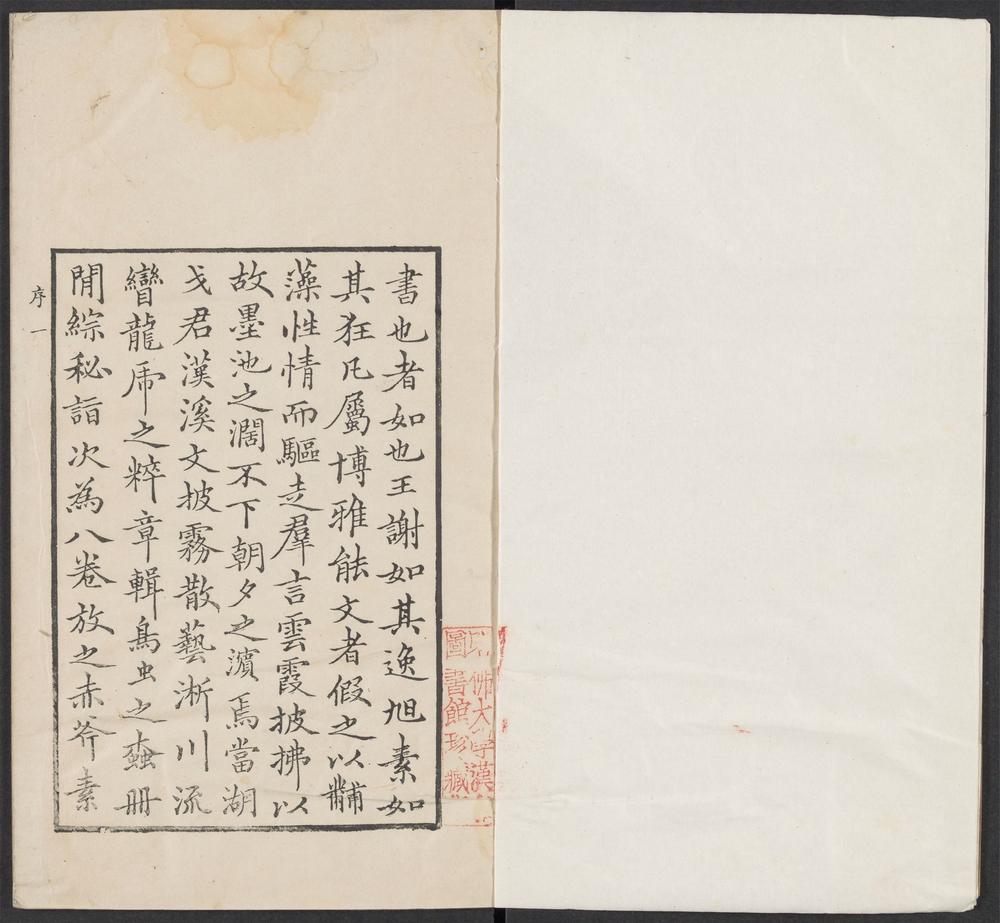 書也者如也王謝如其逸旭素如
其狂凡屬博雅能文者假之以黼
藻性情而驅走羣言雲霞披拂以
故墨池之濶不下朝夕之濵焉當湖
戈君漢溪文披霧散藝淅川流
矕龍虎之粹章輯鳥虫之蠧冊
閒綜秘詣次為八卷放之赤斧素
序一
佛大學漢
圖書館珍藏